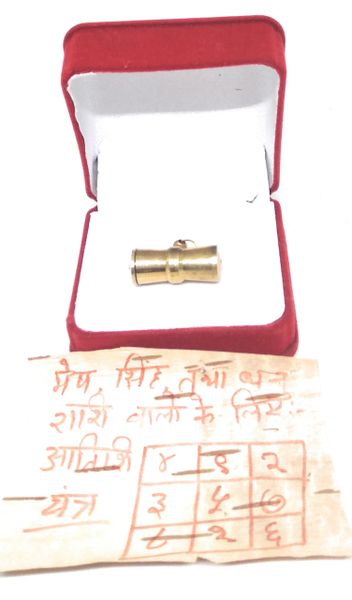 मेष, सिंह, तथा धनु
राशी वालो के लिये:-
आतिशी ४ ९ २
यंत्र ३ ५ ७
८ १ ६